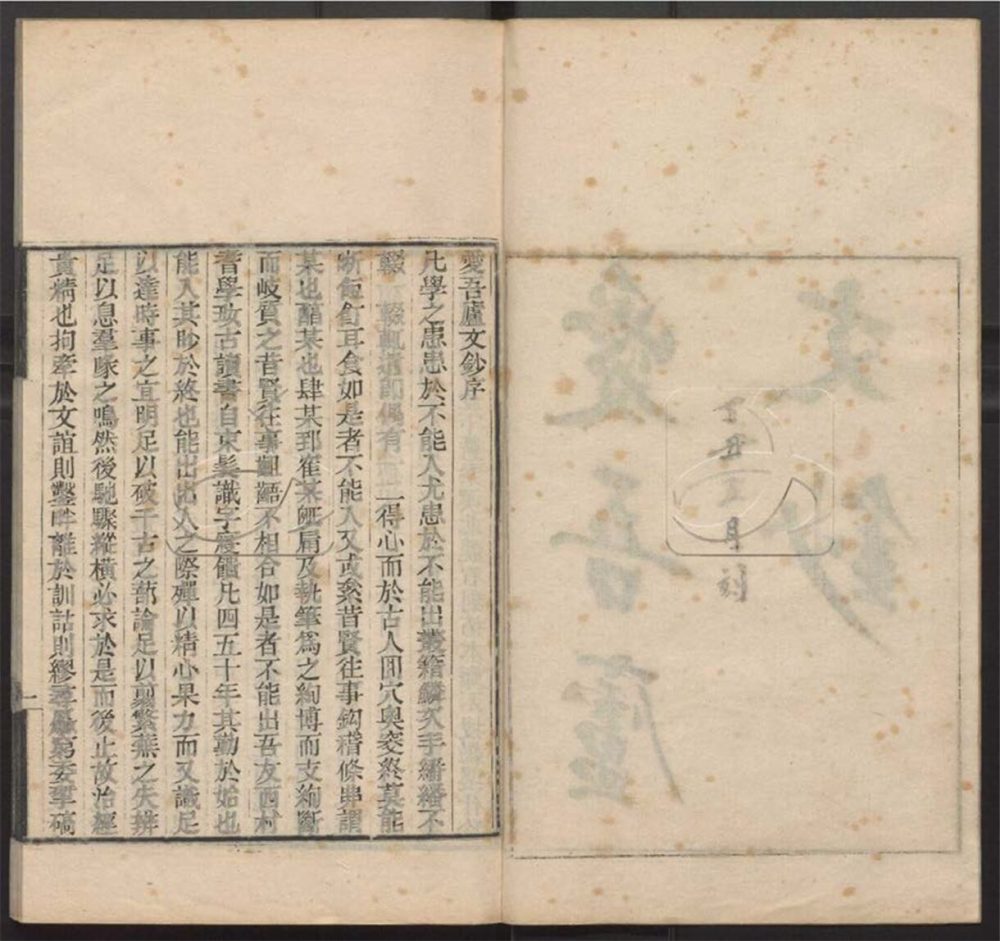 愛吾廬
文鈔
丁丑月刻
愛吾廬文鈔序
凡學之患患於不能入尤患於不能出叢籍鱗次手繙繙不
輟輟輒遺即偶有一二得心而於古人囬穴奧窔終莫能
晰飣耳食如是者不能入又或案昔賢往事鈎稽條串謂
某也醇某也肆某郅某屑及執筆爲之絢博而支絢斷
而岐質之昔賢往事齟齬不相合如是者不能出吾友西村
耆學攷古讀書自束髮識字寢饋凡四五十年其勤於始也
能入其眇於終也能出出入之際殫以精心果力而又識足
以達時事之宜明足以破千古之蔀論足以翦繁蕪之失辨
足以息羣喙之鳴然後馳驟縱橫必求於是而後止故治經
貴精也拘牽於文誼則鑿畔離於訓詁則繆尋委碻